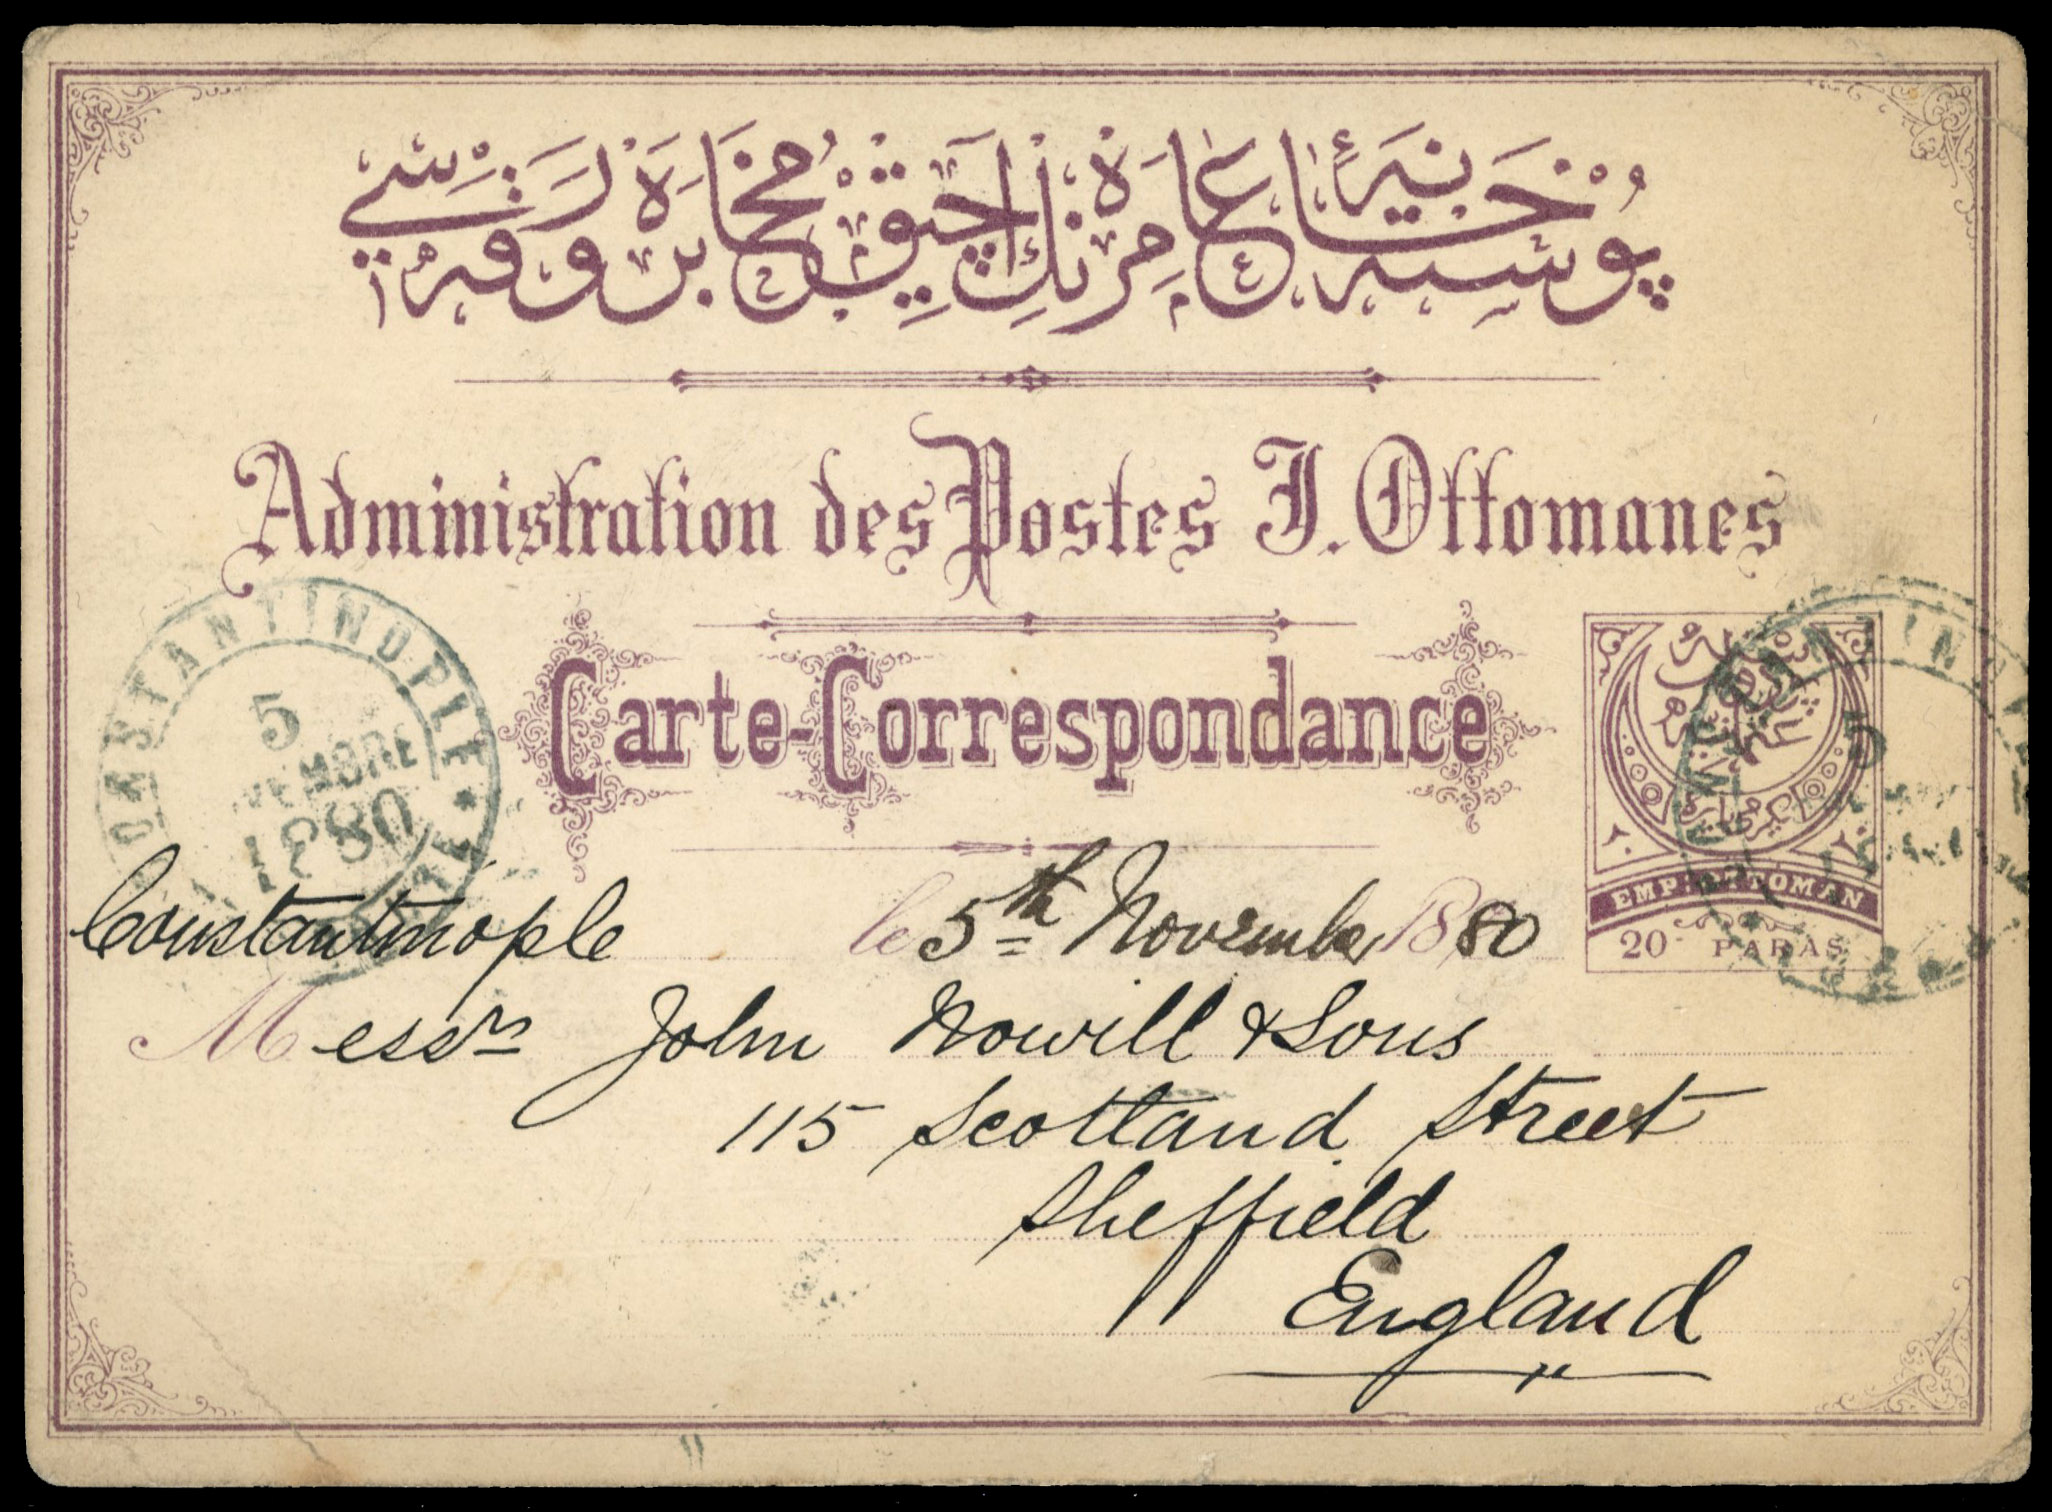 پوسته خانهٔ عامره نك آچيق مخابره ورقه سی
Administration des Postes I. Ottomanes
Carte-Correspondance
CONSTANTINOPLE
5
1880
5
EMP: OTTOMAN
20 PARAS
Constantinople le 5th November 1880
Messrs John Nowill & Sons
115 Scotland Street
Sheffield
England